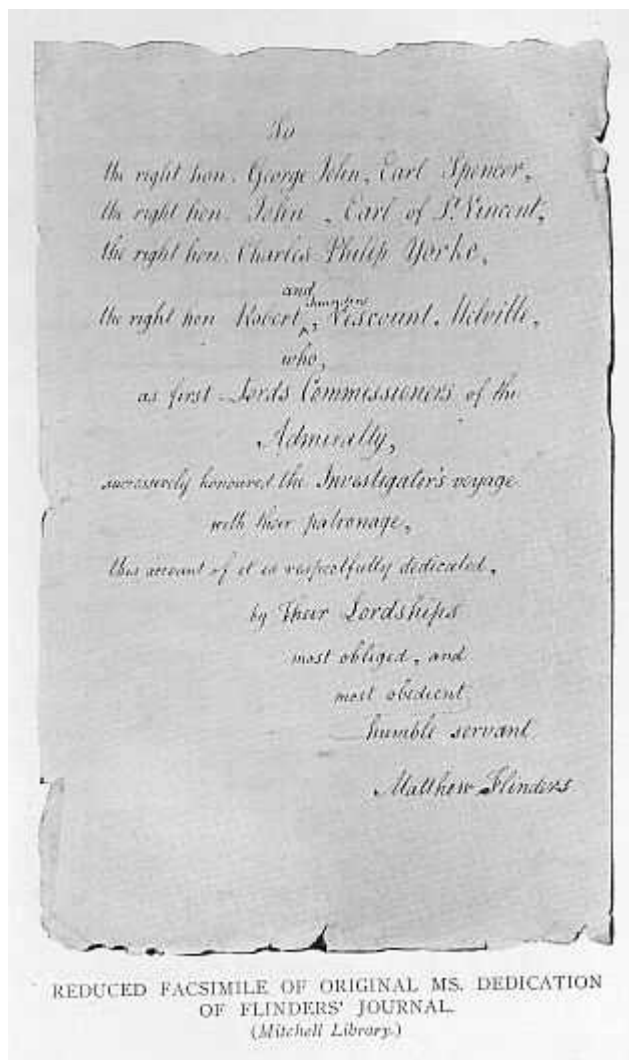 To
the right hon. George John, Earl Spencer,
the right hon. John, Earl of St. Vincent,
the right hon. Charles Philip Yorke,
and
the right hon Robert, Viscount. Melville,
who,
as first Lords Commissioners of the
Admiralty,
successively honoured the Investigator's voyage
with their patronage,
this account of it is respectfully dedicated,
by Their Lordships
most obliged, and
most obedient
humble servant
Matthew Flinders
REDUCED FACSIMILE OF ORIGINAL MS. DEDICATION
OF FLINDERS' JOURNAL.
(Mitchell Library.)